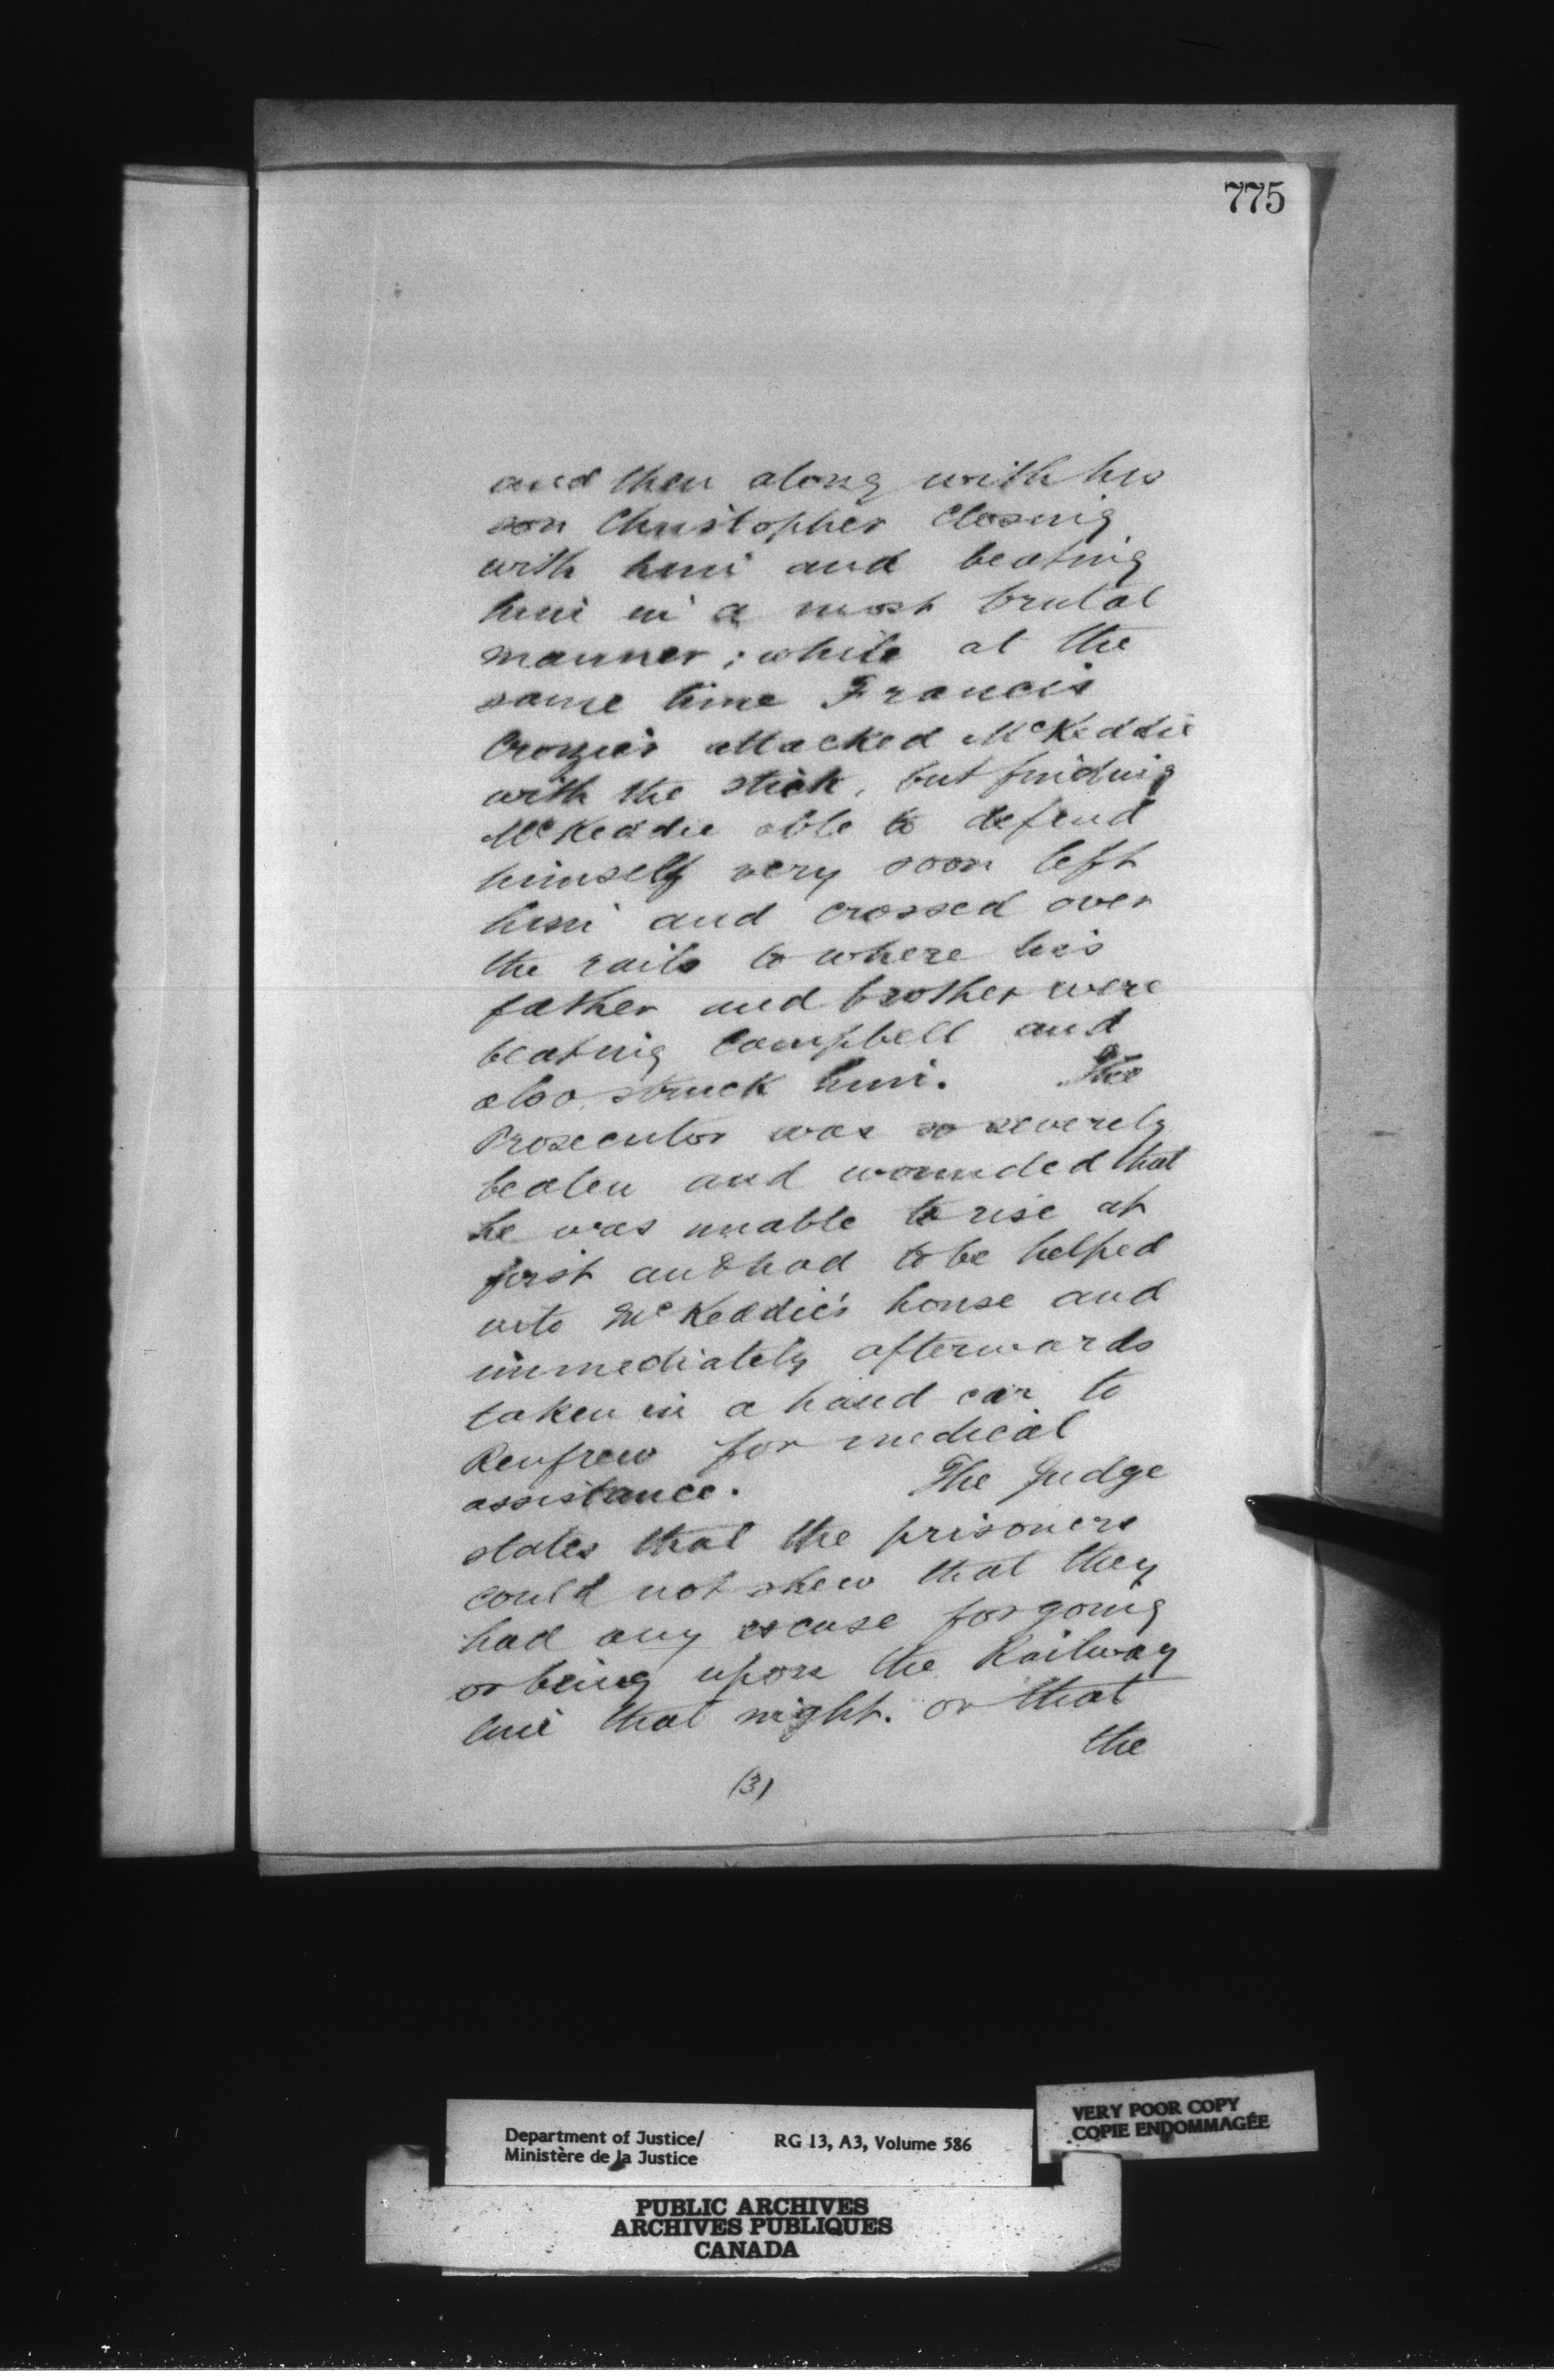 775
and then along with his
son Christopher closing
with him and beating
him in a most brutal
manner; while at the
same time Francis
Crozier attacked McKeddie
with the stick, but finding
McKeddie able to defend
himself very soon left
him and crossed over
the rails to where his
father and brother were
beating Campbell and
also struck him. The
Prosecutor was so severely
beaten and wounded that
he was unable to rise at
first and had to be helped
into McKeddie's house and
immediately afterwards
taken in a hand car to
Renfrew for medical
assistance. The Judge
states that the prisoners
could not shew that they
had any excuse for going
or being upon the Railway
line that night. or that
the
(3)
VERY POOR COPY
COPIE ENDOMMAGÉE
Department of Justice/ RG 13, A3, Volume 586
Ministère de la Justice
PUBLIC ARCHIVES
ARCHIVES PUBLIQUES
CANADA